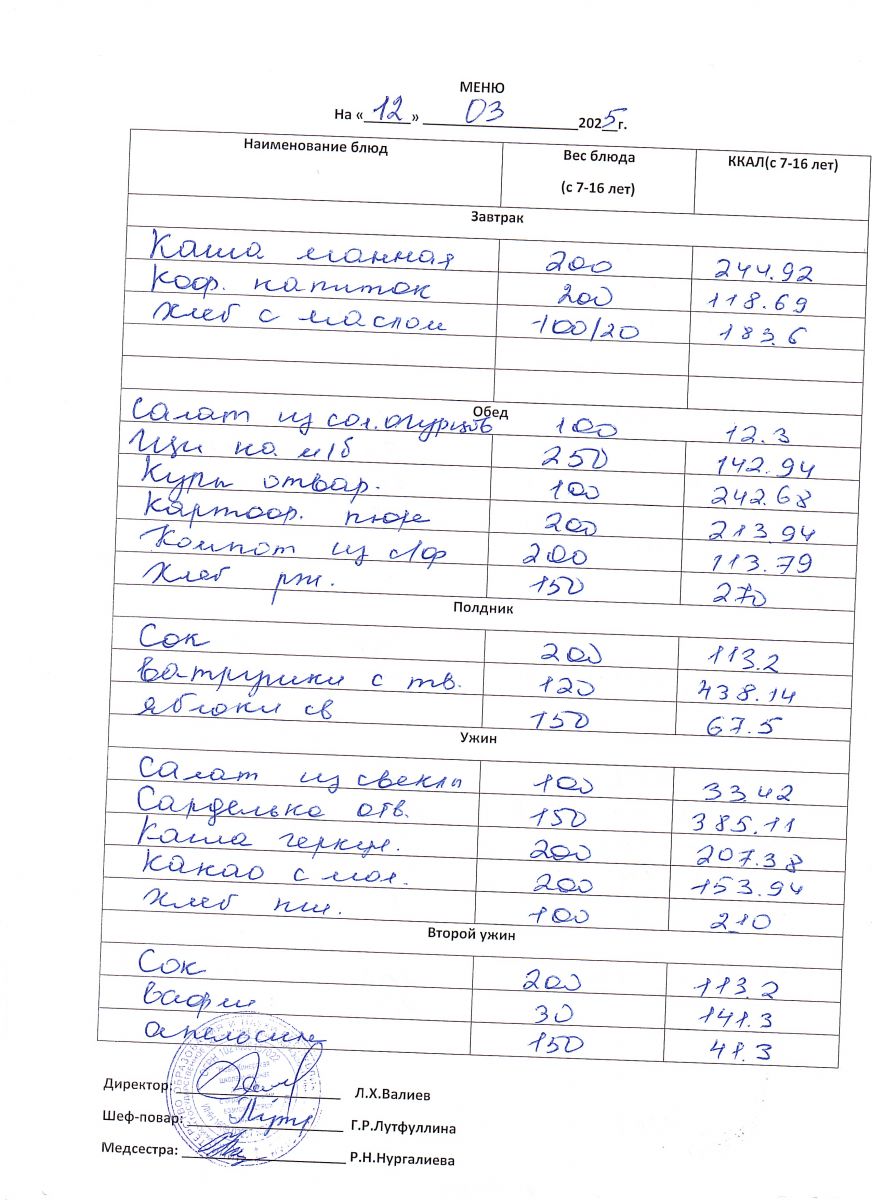 МЕНЮ
На «12» 03 2025г.
Наименование блюд Вес блюда (с 7-16 лет) ККАЛ(с 7-16 лет)
Завтрак
Каша манная 200 244.92
Коф. напиток 200 118.69
Хлеб с маслом 100/20 183.6
Обед
Салат из сол.огурцов 100 12.3
Щи на м/б 250 142.94
Куры отвар. 100 242.68
Картоф. пюре 200 213.94
Компот из с/ф 200 113.79
Хлеб рж. 150 270
Полдник
Сок 200 113.2
Ватрушки с тв. 120 438.14
яблоки св 150 67.5
Ужин
Салат из свеклы 100 33.42
Сарделька отв. 150 385.11
Каша геркул. 200 207.38
Какао с мол. 200 153.94
Хлеб пш. 100 210
Второй ужин
Сок 200 113.2
Вафли 30 141.3
апельсин 150 41.3
Директор: Л.Х.Валиев
Шеф-повар: Г.Р.Лутфуллина
Медсестра: Р.Н.Нургалиева